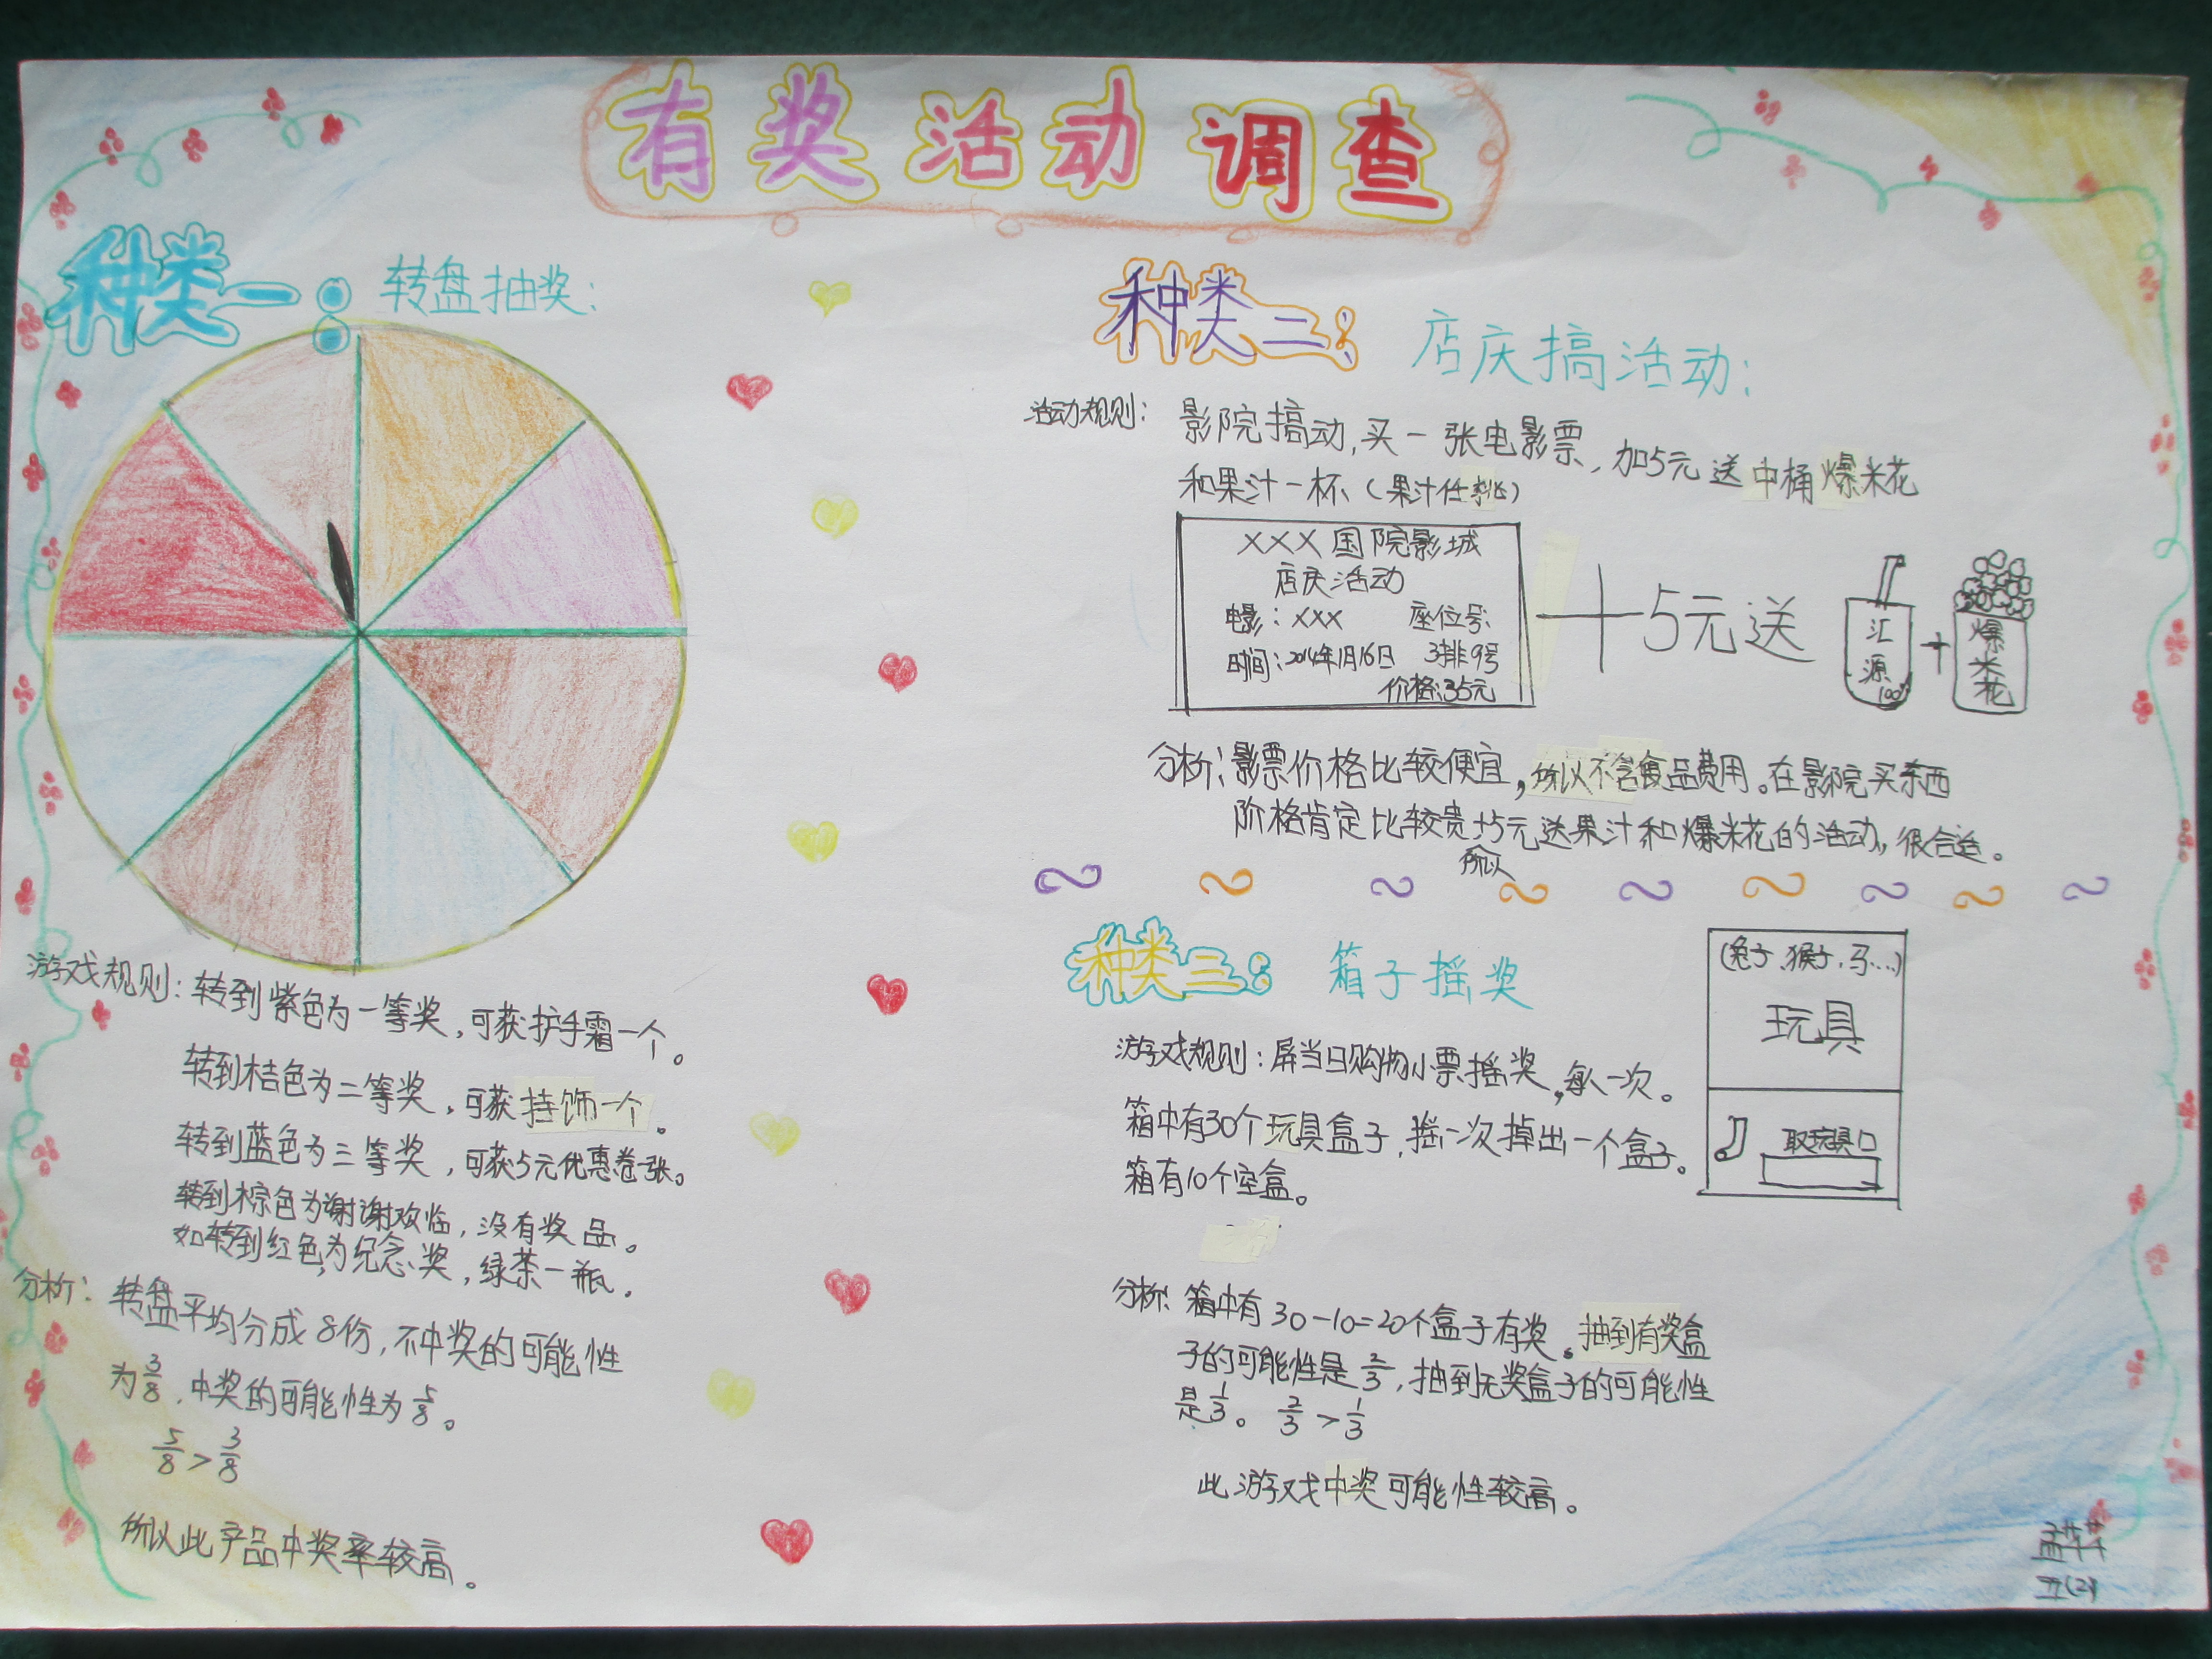 有奖活动调查
种类一：转盘抽奖：
游戏规则：转到紫色为一等奖，可获护手霜一个。
转到桔色为二等奖，可获挂饰一个。
转到蓝色为三等奖，可获5元优惠卷一张。
转到棕色为谢谢欢临，没有奖品。
如转到红色，为纪念奖，绿茶一瓶。
分析：转盘平均分成8份，不中奖的可能性
为3/8，中奖的可能性为5/8。
5/8>3/8
所以此产品中奖率较高。
种类二：店庆搞活动：
活动规则：影院搞动，买一张电影票，加5元送中桶爆米花
和果汁一杯（果汁任挑）
XXX国院影城
店庆活动
电影：XXX 座位号：
时间：2014年1月16日 3排9号
价格：35元
+5元送
汇源100%
+
爆米花
分析：影票价格比较便宜，所以不含食品费用。在影院买东西
阶格肯定比较贵，所以+5元送果汁和爆米花的活动，很合适。
种类三：箱子摇奖
(兔子、猴子、马...)
玩具
取玩具口
游戏规则：屏当日购物小票摇奖，每人一次。
箱中有30个玩具盒子，摇一次掉出一个盒子。
箱有10个空盒。
分析：箱中有30-10=20个盒子有奖。抽到有奖盒
子的可能性是2/3，抽到无奖盒子的可能性
是1/3。2/3>1/3
此游戏中奖可能性较高。
五(2)